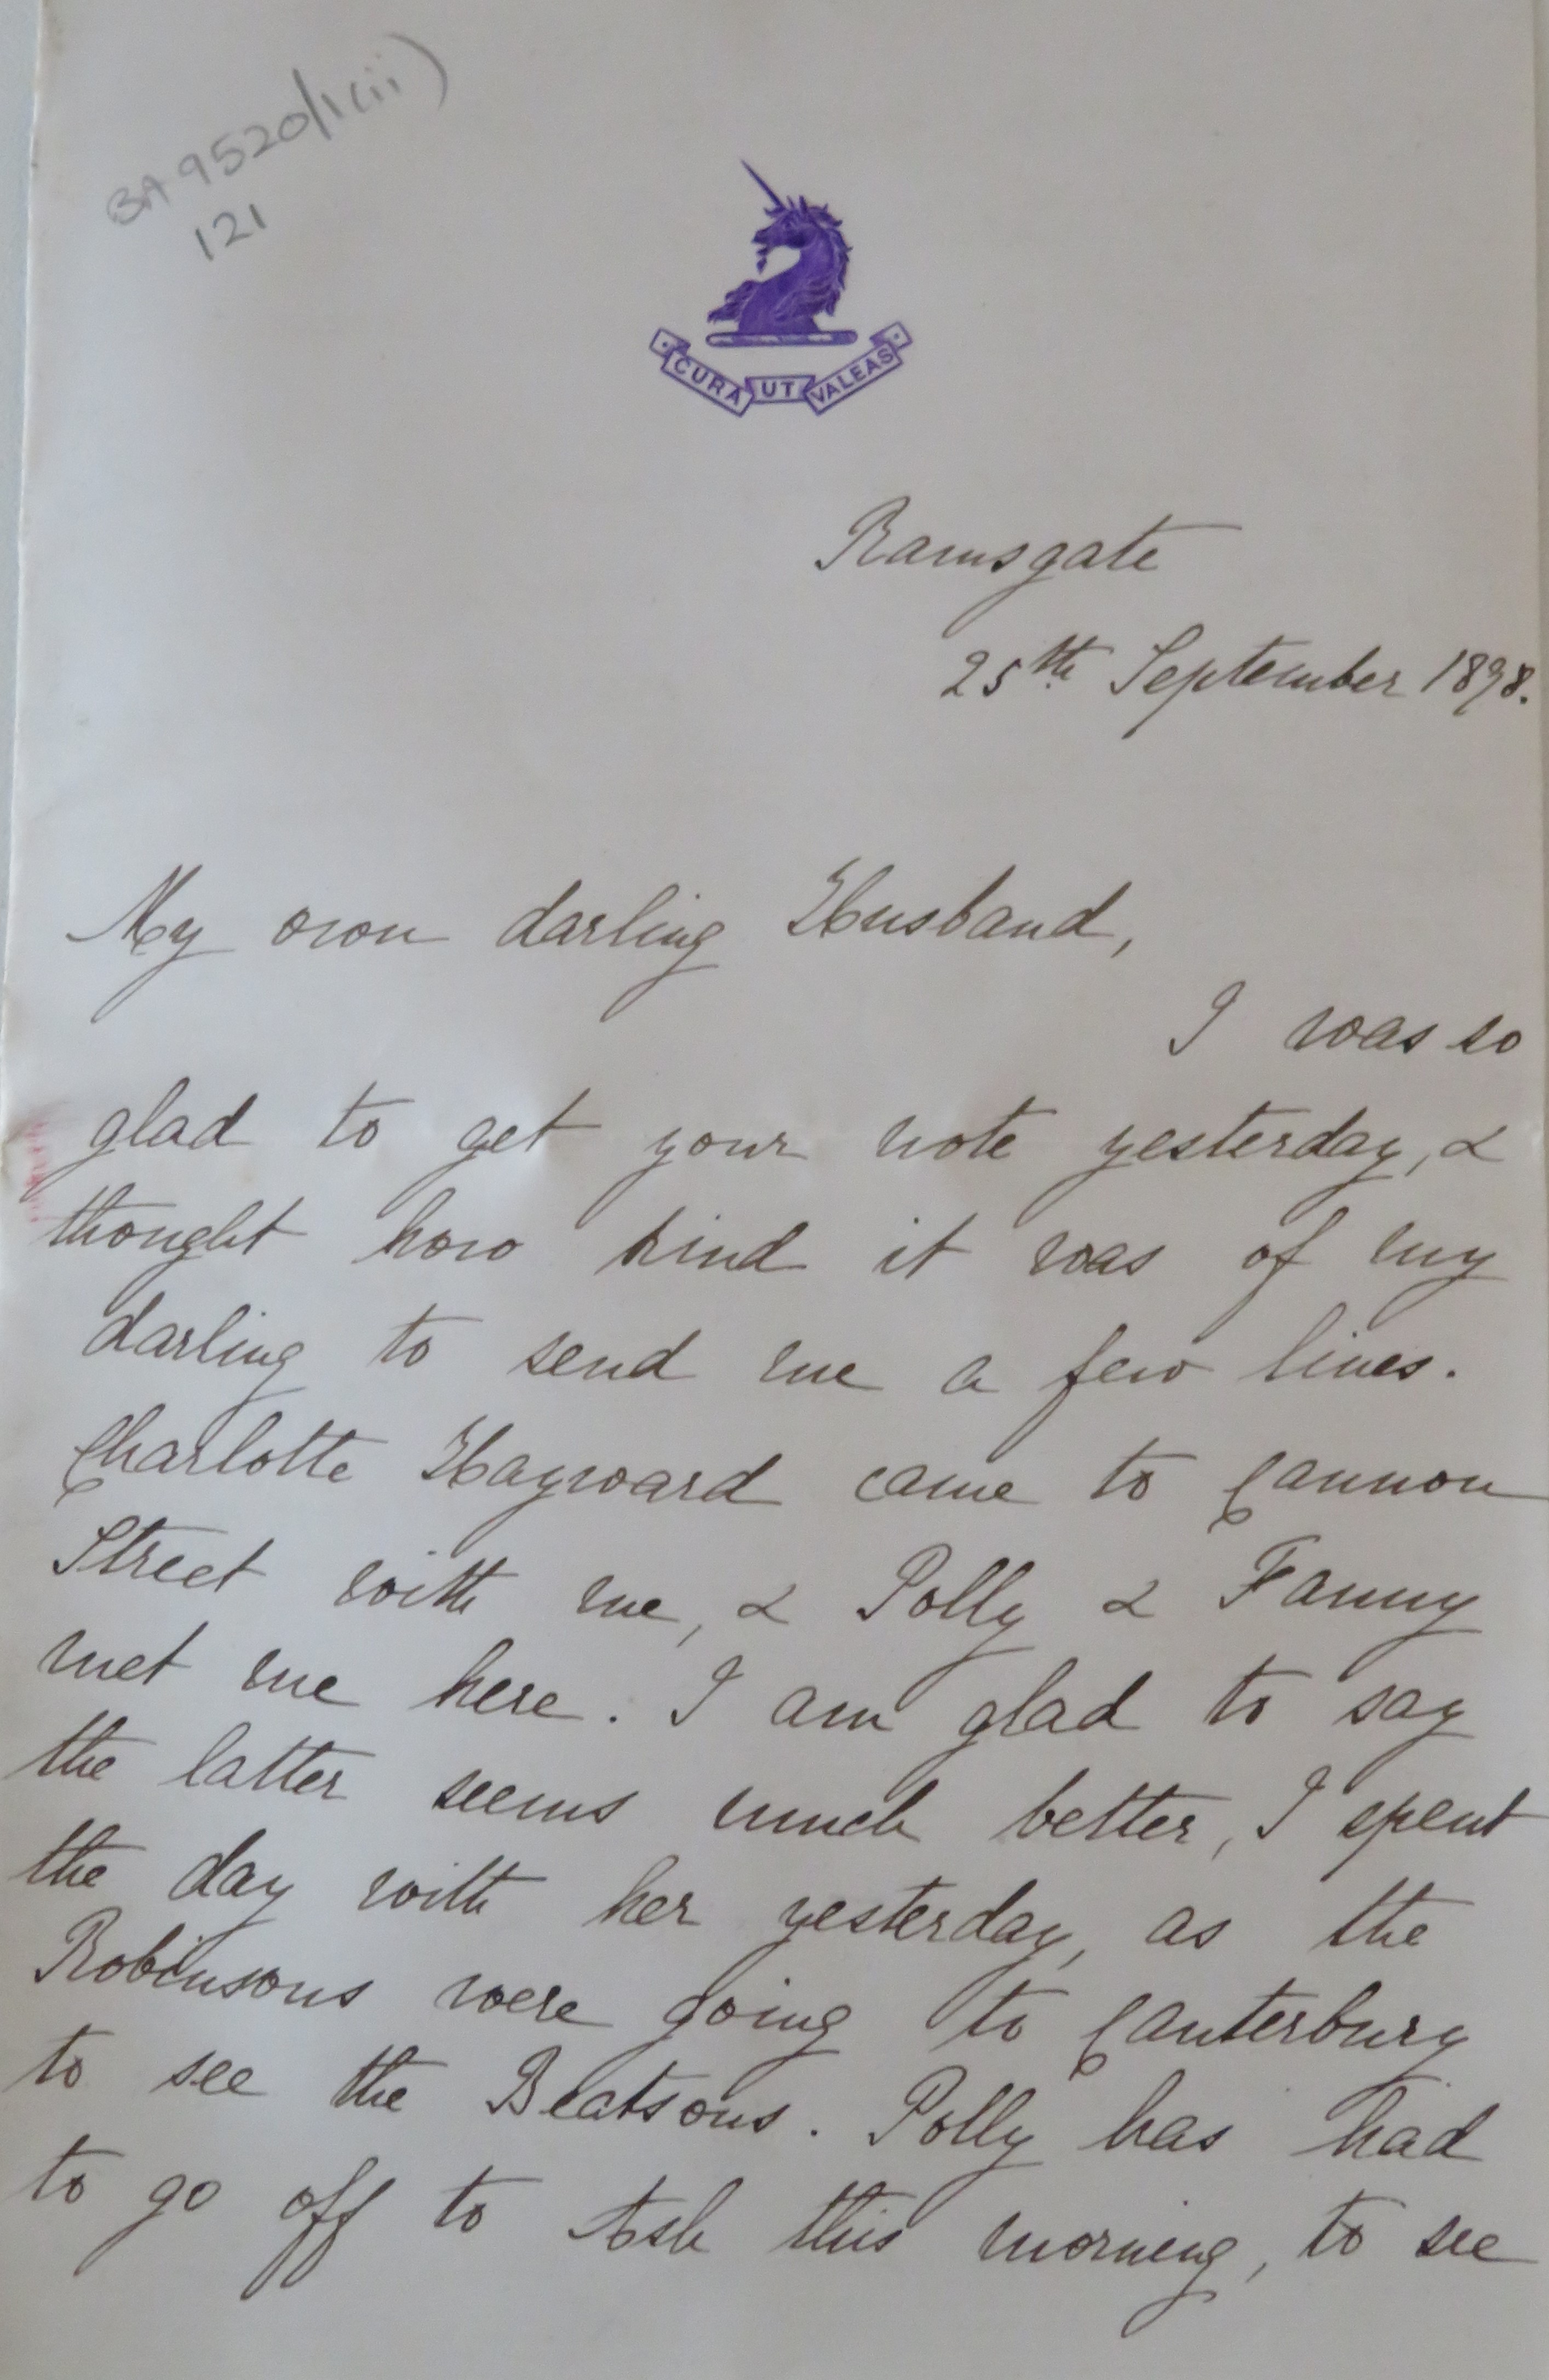 BA 9520/1(ii)
121
CURA UT VALEAS
Ramsgate
25th September 1898.
My own darling Husband,
I was so
glad to get your note yesterday, &
thought how kind it was of my
darling to send me a few lines.
Charlotte Hayward came to Cannon
Street with me, & Polly & Fanny
met me here. I am glad to say
the latter seems much better, I spent
the day with her yesterday, as the
Robinsons were going to Canterbury
to see the Beatsons. Polly has had
to go off to Ash this morning, to see